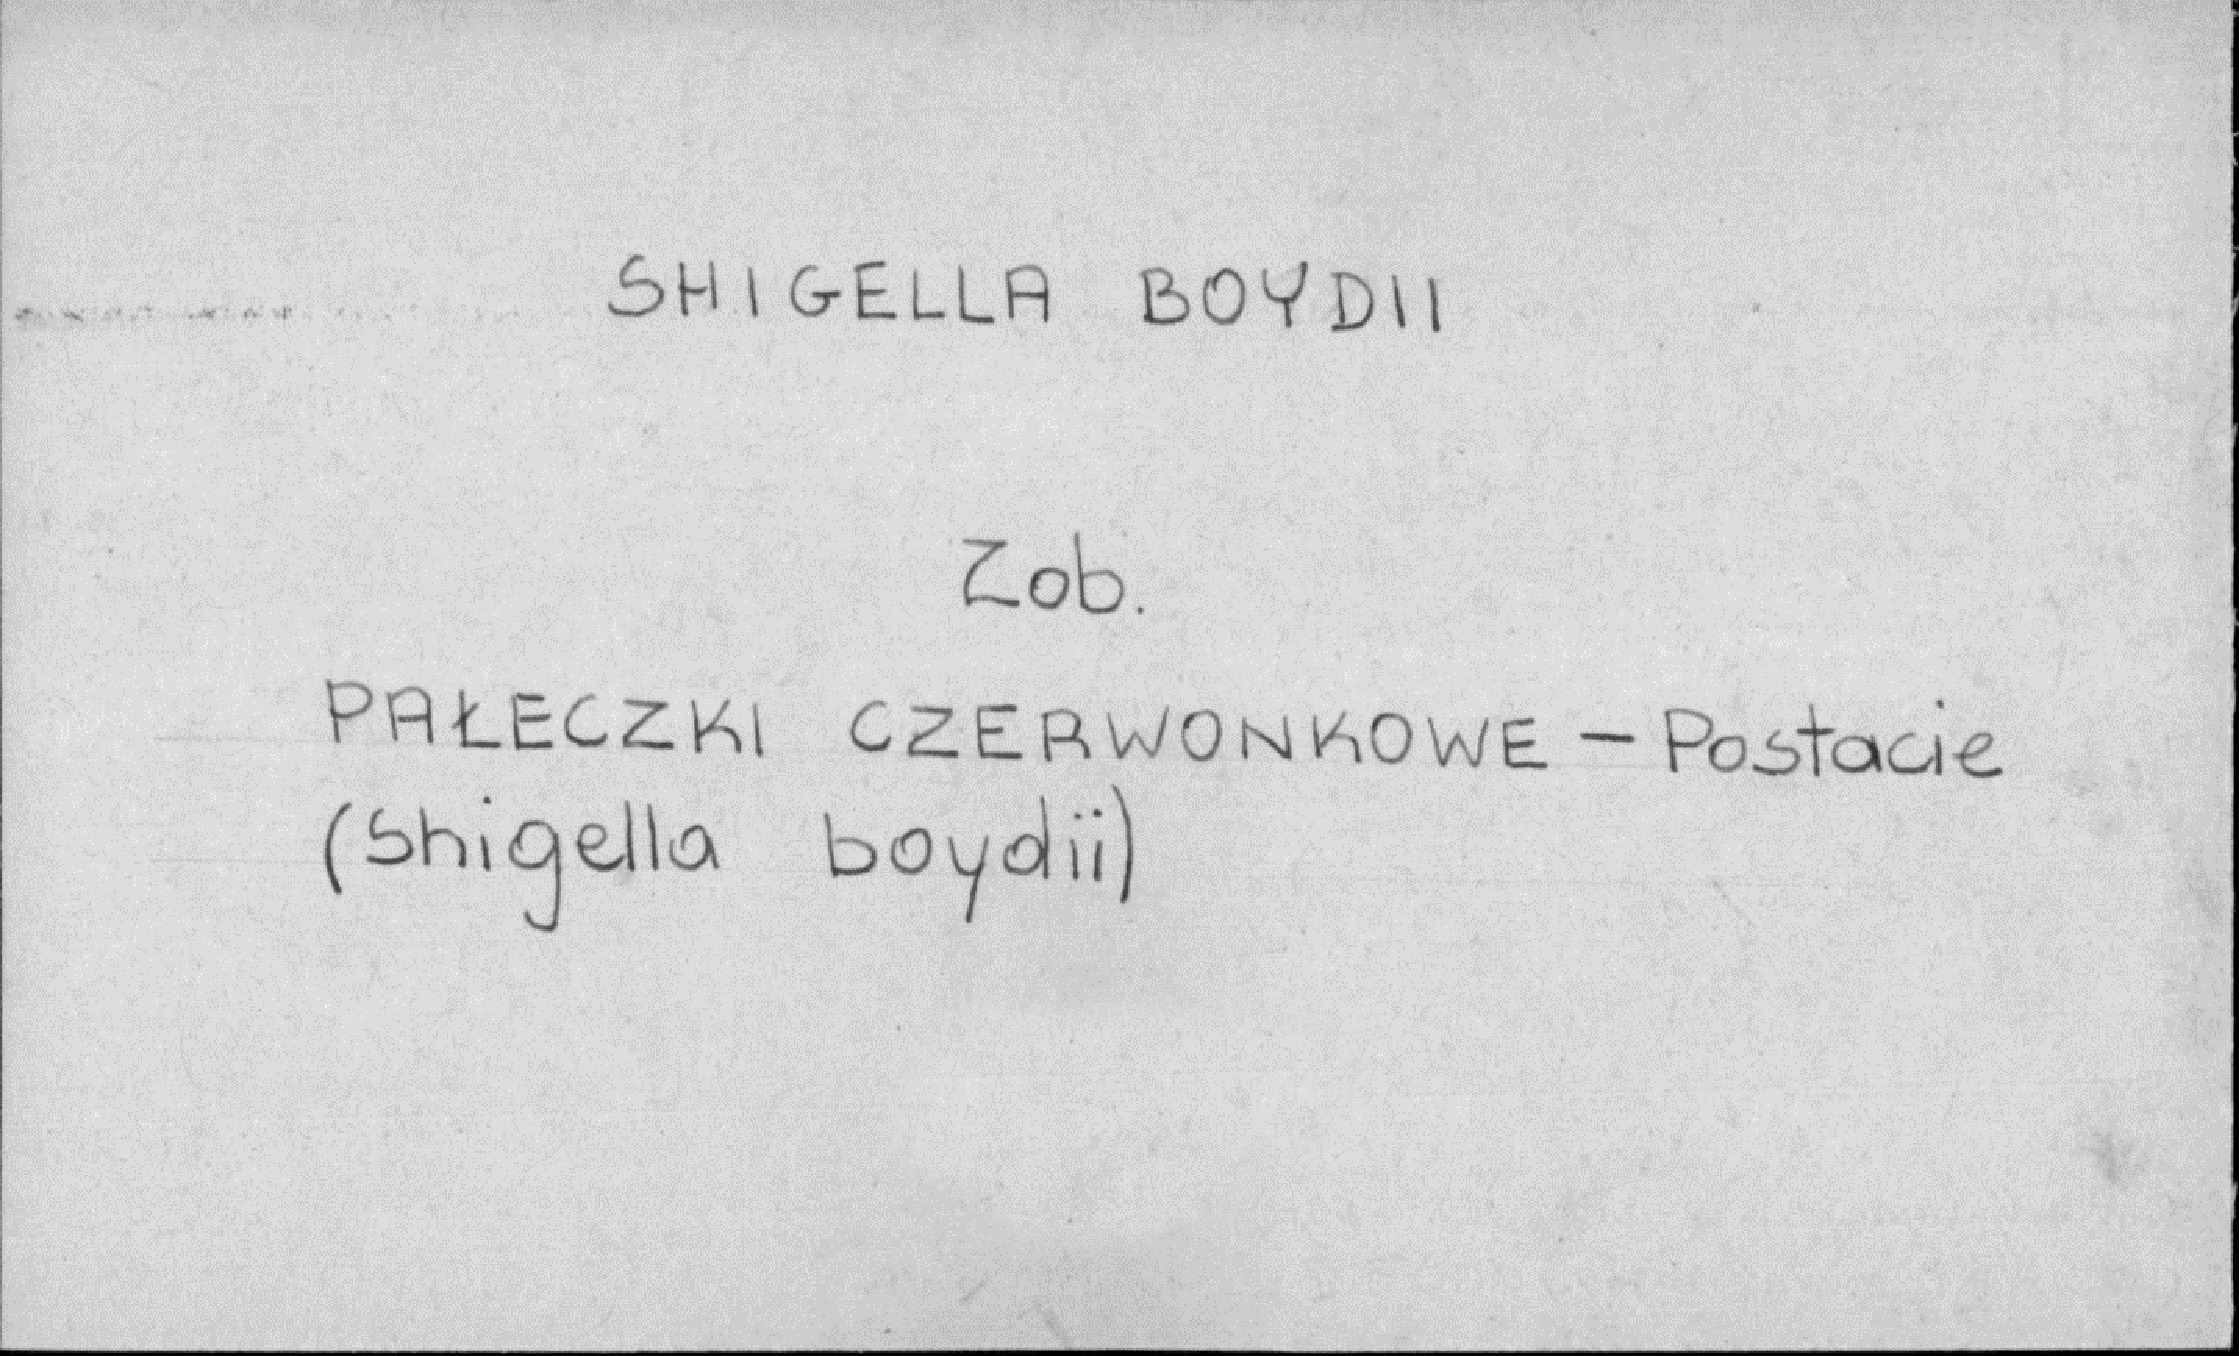 SHIGELLA BOYDII
Zob.
PAŁECZKI CZERWONKOWE – Postacie
(Shigella boydii)